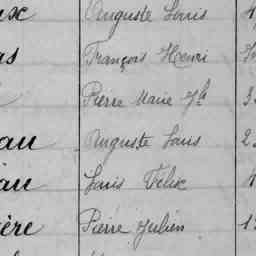 ux Auguste Louis 4
as François Henri
Pierre Marie Jh 3
au Auguste Louis 2
au Louis Félix 4
ère Pierre Julien 1